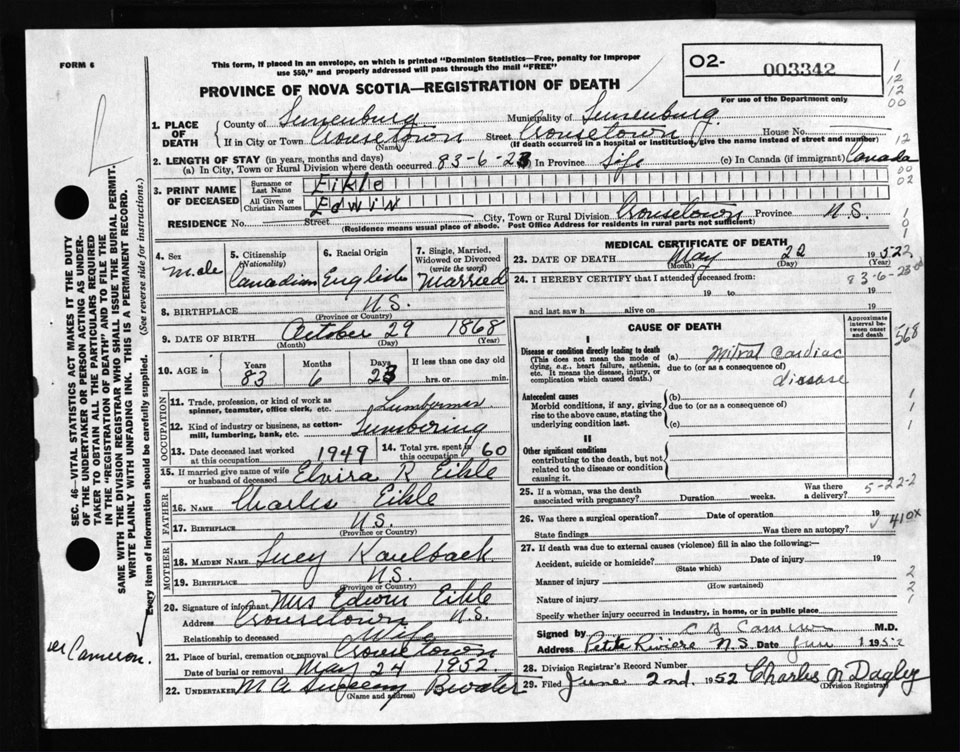 FORM 6
This form, if placed in an envelope, on which is printed "Dominion Statistics—Free, penalty for improper
use $50," and properly addressed will pass through the mail "FREE"
PROVINCE OF NOVA SCOTIA—REGISTRATION OF DEATH
O2- 003342
For use of the Department only
1
12
12
00
1. PLACE OF DEATH County of Lunenburg Municipality of Lunenburg
If in City or Town Crousetown (Name) Street Crousetown House No.
(If death occurred in a hospital or institution, give the name instead of street and number)
12
2. LENGTH OF STAY (in years, months and days)
(a) In City, Town or Rural Division where death occurred 83-6-23 In Province Life (c) In Canada (if immigrant) Canada
00
02
3. PRINT NAME OF DECEASED Surname or Last Name Eikle
All Given or Christian Names Edwin
RESIDENCE No. Street City, Town or Rural Division Crousetown Province N.S.
(Residence means usual place of abode. Post Office Address for residents in rural parts not sufficient)
1
01
4. Sex Male
5. Citizenship (Nationality) Canadian
6. Racial Origin English
7. Single, Married, Widowed or Divorced (write the word) Married
8. BIRTHPLACE N.S.
(Province or Country)
9. DATE OF BIRTH October 29 1868
(Month) (Day) (Year)
10. AGE in Years 83 Months 6 Days 23 If less than one day old hrs. or min.
OCCUPATION
11. Trade, profession, or kind of work as spinner, teamster, office clerk, etc. Lumberman
12. Kind of industry or business, as cotton-mill, lumbering, bank, etc. Lumbering
13. Date deceased last worked at this occupation 1949 14. Total yrs. spent in this occupation 60
15. If married give name of wife or husband of deceased Elvira R Eikle
FATHER
16. NAME Charles Eikle
17. BIRTHPLACE N.S.
(Province or Country)
MOTHER
18. MAIDEN NAME Lucy Kaulback
19. BIRTHPLACE N.S.
(Province or Country)
20. Signature of informant Mrs Edwin Eikle
Address Crousetown N.S.
Relationship to deceased Wife
21. Place of burial, cremation or removal Crousetown
Date of burial or removal May 24 1952
22. UNDERTAKER M A Sweeny Bwater
(Name and address)
MEDICAL CERTIFICATE OF DEATH
23. DATE OF DEATH May 22 1952
(Month) (Day) (Year)
24. I HEREBY CERTIFY that I attended deceased from:
83-6-23
19 to 19
and last saw h alive on 19
CAUSE OF DEATH
Approximate interval between onset and death
568
I
Disease or condition directly leading to death
(This does not mean the mode of dying, e.g., heart failure, asthenia, etc. It means the disease, injury, or complication which caused death.)
(a) Mitral Cardiac
due to (or as a consequence of)
disease
Antecedent causes
Morbid conditions, if any, giving rise to the above cause, stating the underlying condition last.
(b)
due to (or as a consequence of)
(c)
1
1
1
II
Other significant conditions
contributing to the death, but not related to the disease or condition causing it.
25. If a woman, was the death associated with pregnancy? Duration weeks. Was there a delivery?
5-22-2
26. Was there a surgical operation? Date of operation 19
State findings Was there an autopsy?
410x
27. If death was due to external causes (violence) fill in also the following:—
Accident, suicide or homicide? Date of injury 19
(State which)
Manner of injury
(How sustained)
Nature of injury
Specify whether injury occurred in industry, in home, or in public place
2
2
1
Signed by C B Cameron M.D.
Address Petite Riviere N.S. Date Jun 1 1952
28. Division Registrar's Record Number
29. Filed June 2nd. 1952 Charles N Dagley
(Division Registrar)
SEC. 46—VITAL STATISTICS ACT MAKES IT THE DUTY
OF THE UNDERTAKER OR PERSON ACTING AS UNDERTAKER
TO OBTAIN ALL THE PARTICULARS REQUIRED
IN THE "REGISTRATION OF DEATH" AND TO FILE THE
SAME WITH THE DIVISION REGISTRAR WHO SHALL ISSUE THE BURIAL PERMIT.
WRITE PLAINLY WITH UNFADING INK. THIS IS A PERMANENT RECORD.
Every item of information should be carefully supplied. (See reverse side for instructions.)
Cameron.